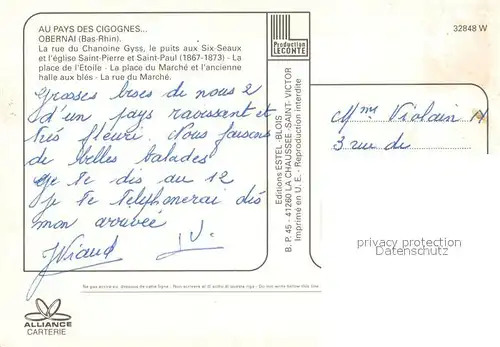 AU PAYS DES CIGOGNES...
OBERNAI (Bas-Rhin).
La rue du Chanoine Gyss, le puits aux Six-Seaux
et l'église Saint-Pierre et Saint-Paul (1867-1873) - La
place de l'Etoile - La place du Marché et l'ancienne
halle aux blés - La rue du Marché.
Grosses bises de nous 2
d'un pays ravissant et
très fleuri. Nous faisons
de belles balades
Je te dis au 12
je te téléphonerai dès
mon arrivée
JViaud J.V.
ALLIANCE
CARTERIE
Ne pas écrire au-dessous de cette ligne - Non scrivere al di sotto di questa riga - Do not write below this line
Production
LECONTE
Editions ESTEL - BLOIS
B. P. 45 - 41260 LA CHAUSSEE - SAINT-VICTOR
Imprimé en U. E. - Reproduction interdite
32848 W
Mme Violain
3 rue de
privacy protection
Datenschutz